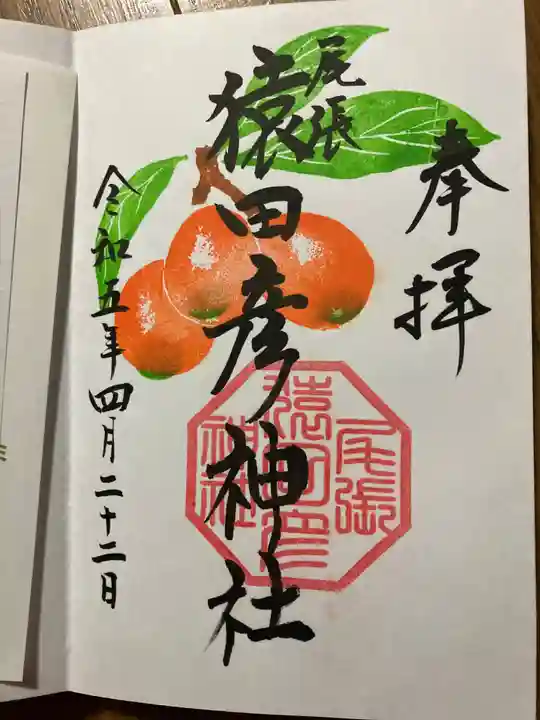 奉拝
尾張
猿田彦神社
尾張
猿田彦
神社
令和五年四月二十二日